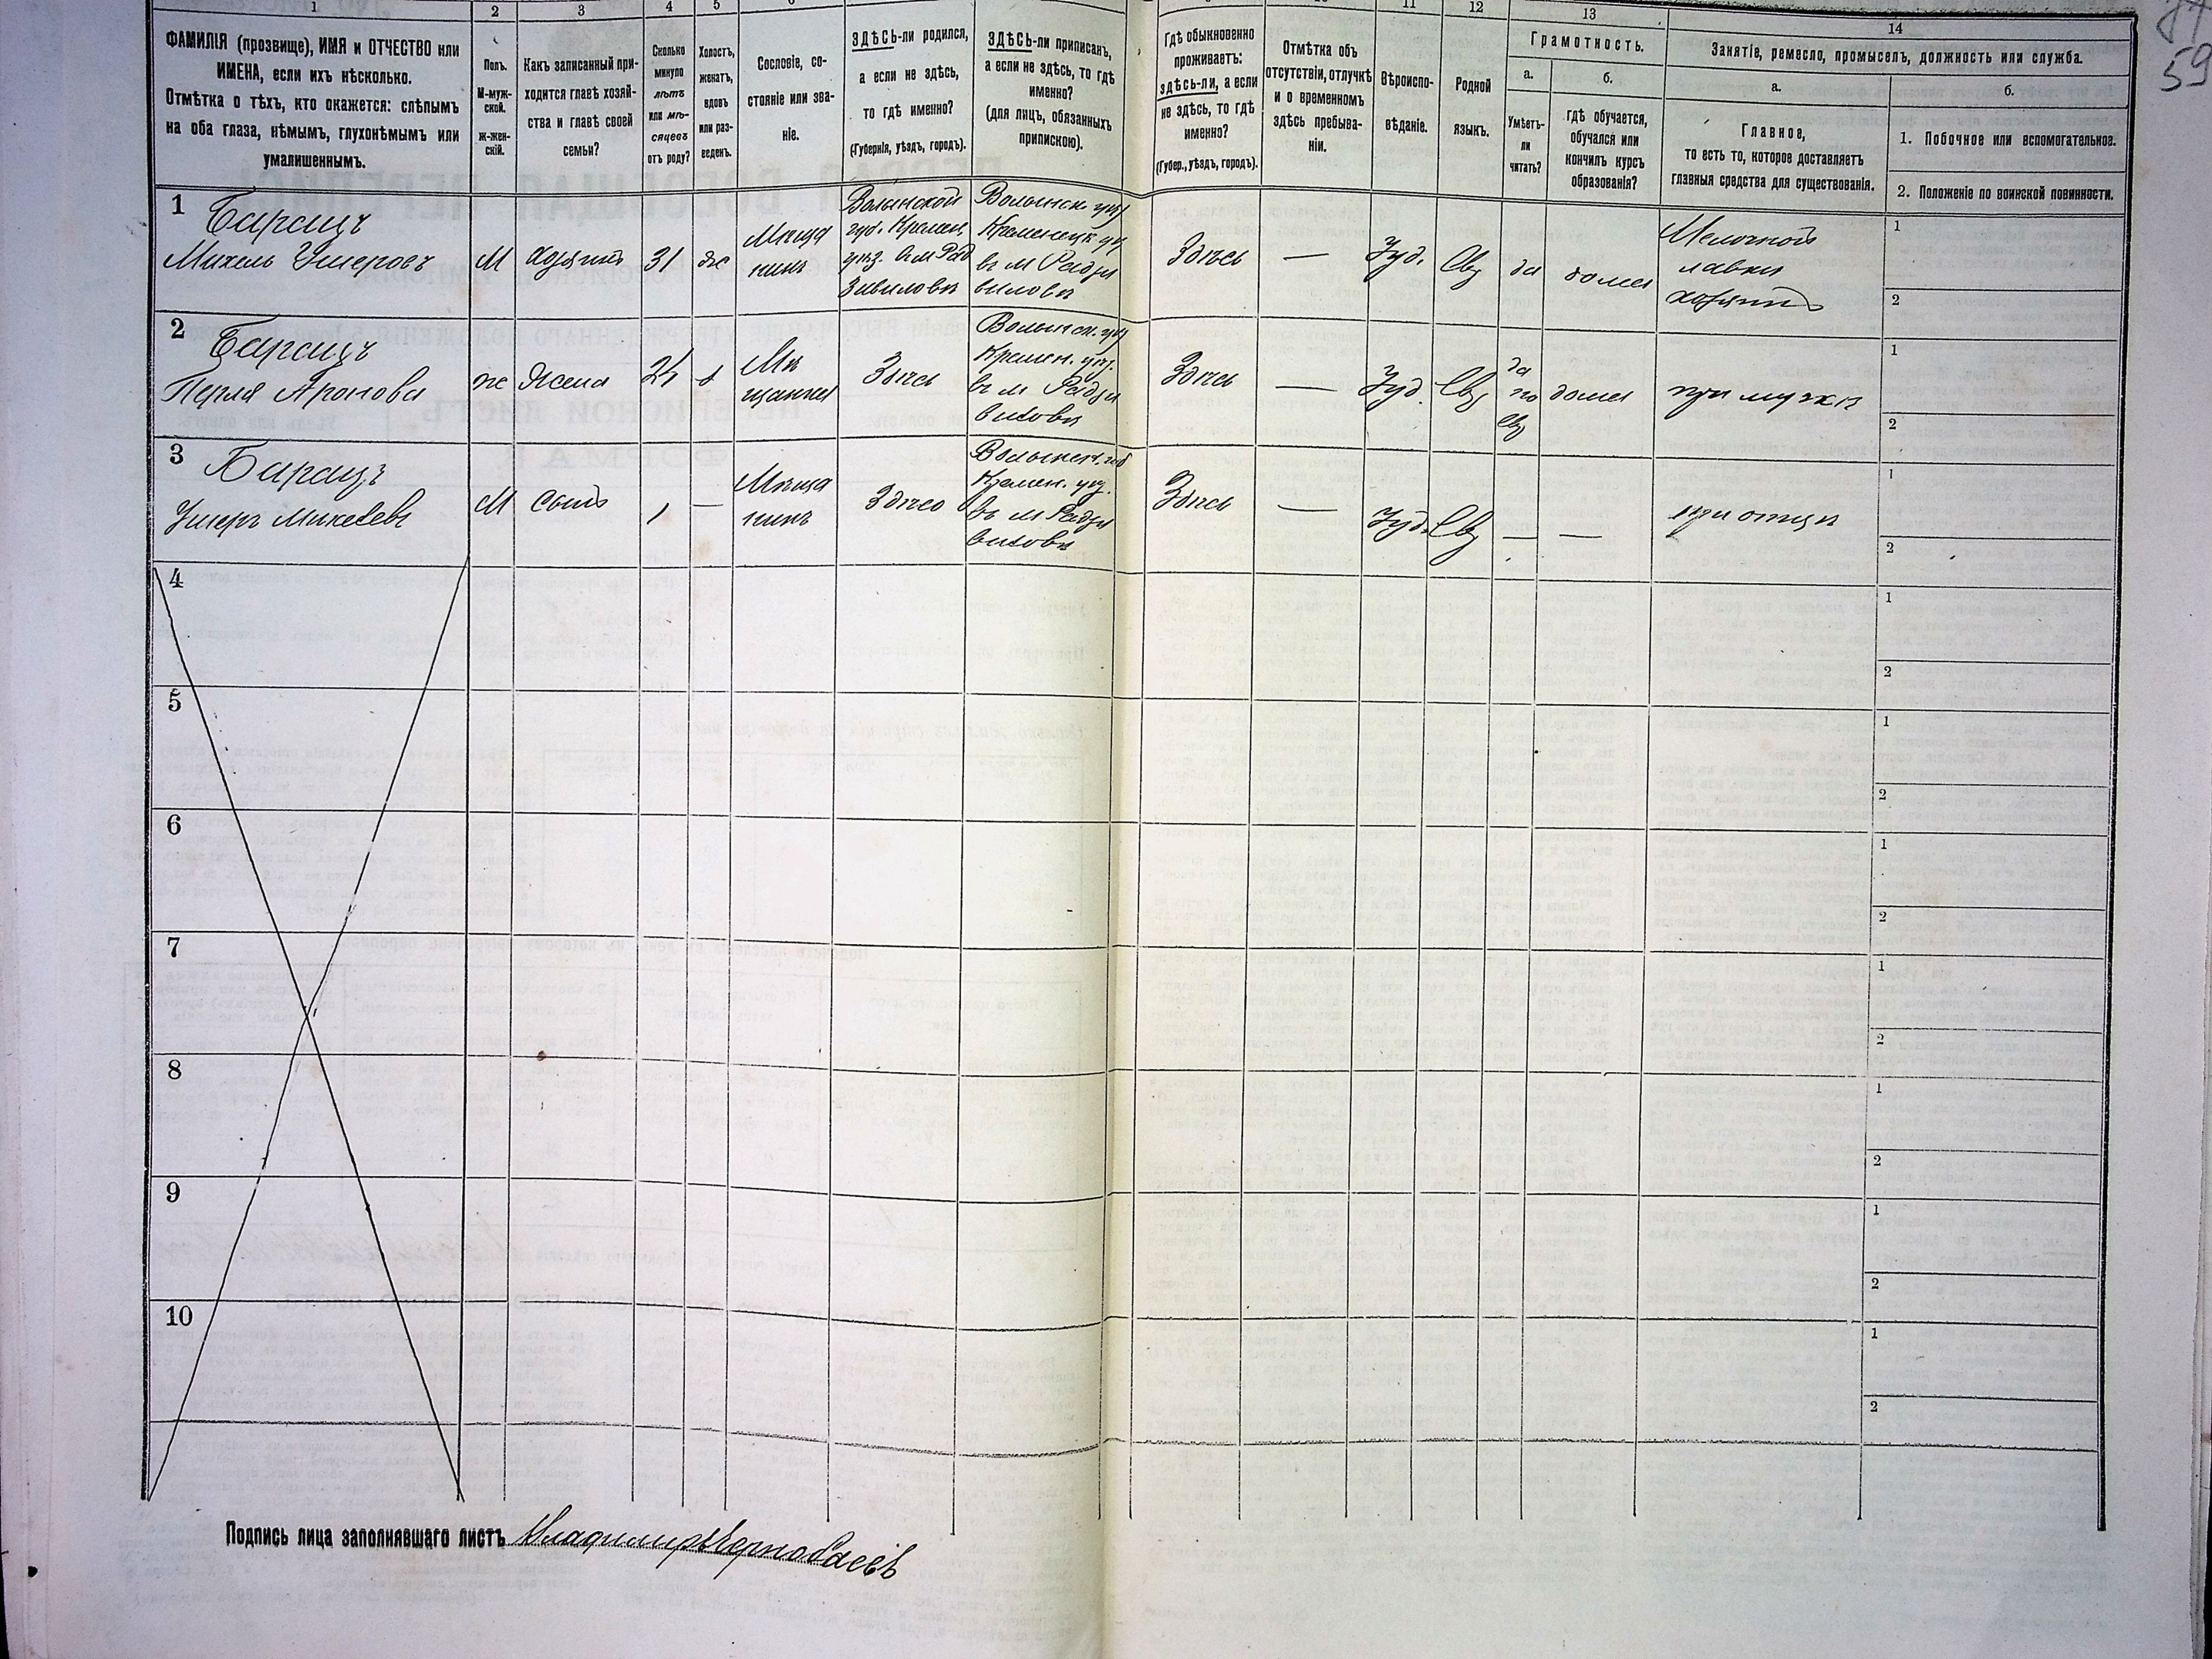 59
1 2 3 4 5 11 12 13 14
ФАМИЛІЯ (прозвище), ИМЯ и ОТЧЕСТВО или
ИМЕНА, если ихъ нѣсколько.
Отмѣтка о тѣхъ, кто окажется: слѣпымъ
на оба глаза, нѣмымъ, глухонѣмымъ или
умалишеннымъ.
Полъ.
М-муж-
ской.
ж-жен-
скій.
Какъ записанный при-
ходится главѣ хозяй-
ства и главѣ своей
семьи?
Сколько
минуло
лѣтъ
или мѣ-
сяцевъ
отъ роду?
Холостъ,
женатъ,
вдовъ
или раз-
веденъ.
Сословіе, со-
стояніе или зва-
ніе.
ЗДѢСЬ-ли родился,
а если не здѣсь,
то гдѣ именно?
(Губернія, уѣздъ, городъ).
ЗДѢСЬ-ли приписанъ,
а если не здѣсь, то гдѣ
именно?
(для лицъ, обязанныхъ
припискою).
Гдѣ обыкновенно
проживаетъ:
здѣсь-ли, а если
не здѣсь, то гдѣ
именно?
(Губер., уѣздъ, городъ).
Отмѣтка объ
отсутствіи, отлучкѣ
и о временномъ
здѣсь пребыва-
ніи.
Вѣроиспо-
вѣданіе.
Родной
языкъ.
Грамотность.
а. б.
Умѣетъ-
ли
читать?
гдѣ обучается,
обучался или
кончилъ курсъ
образованія?
Занятіе, ремесло, промыселъ, должность или служба.
а. б.
Главное,
то есть то, которое доставляетъ
главныя средства для существованія.
1. Побочное или вспомогательное.
2. Положеніе по воинской повинности.
1
Барацъ
Михель Умеровъ
М
хозяинъ
31
же
Мѣща
нинъ
Волынской
губ. Кремен.
уѣз. в м Рад
зивиловѣ
Кременецк
въ м Радзи
виловѣ
Здѣсь
—
Іуд.
Евр
да
дома
Мелочной
лавки
хозяинъ
1
2
2
Барацъ
Перля Аронова
же
Жена
Мѣ
щанка
Здѣсь
Кремен. уѣз.
въ м Радзи
виловѣ
Здѣсь
—
Іуд.
Евр
да
по
евр
дома
при мужѣ
1
2
3
Барацъ
М
сынъ
1
—
Мѣща
нинъ
Здѣсь
Кремен. уѣз.
въ м Радзи
виловѣ
Здѣсь
—
Іуд.
Евр
—
—
при отцѣ
1
2
4
1
2
5
1
2
6
1
2
7
1
2
8
1
2
9
1
2
10
1
2
Подпись лица заполнявшаго листъ Владимиръ